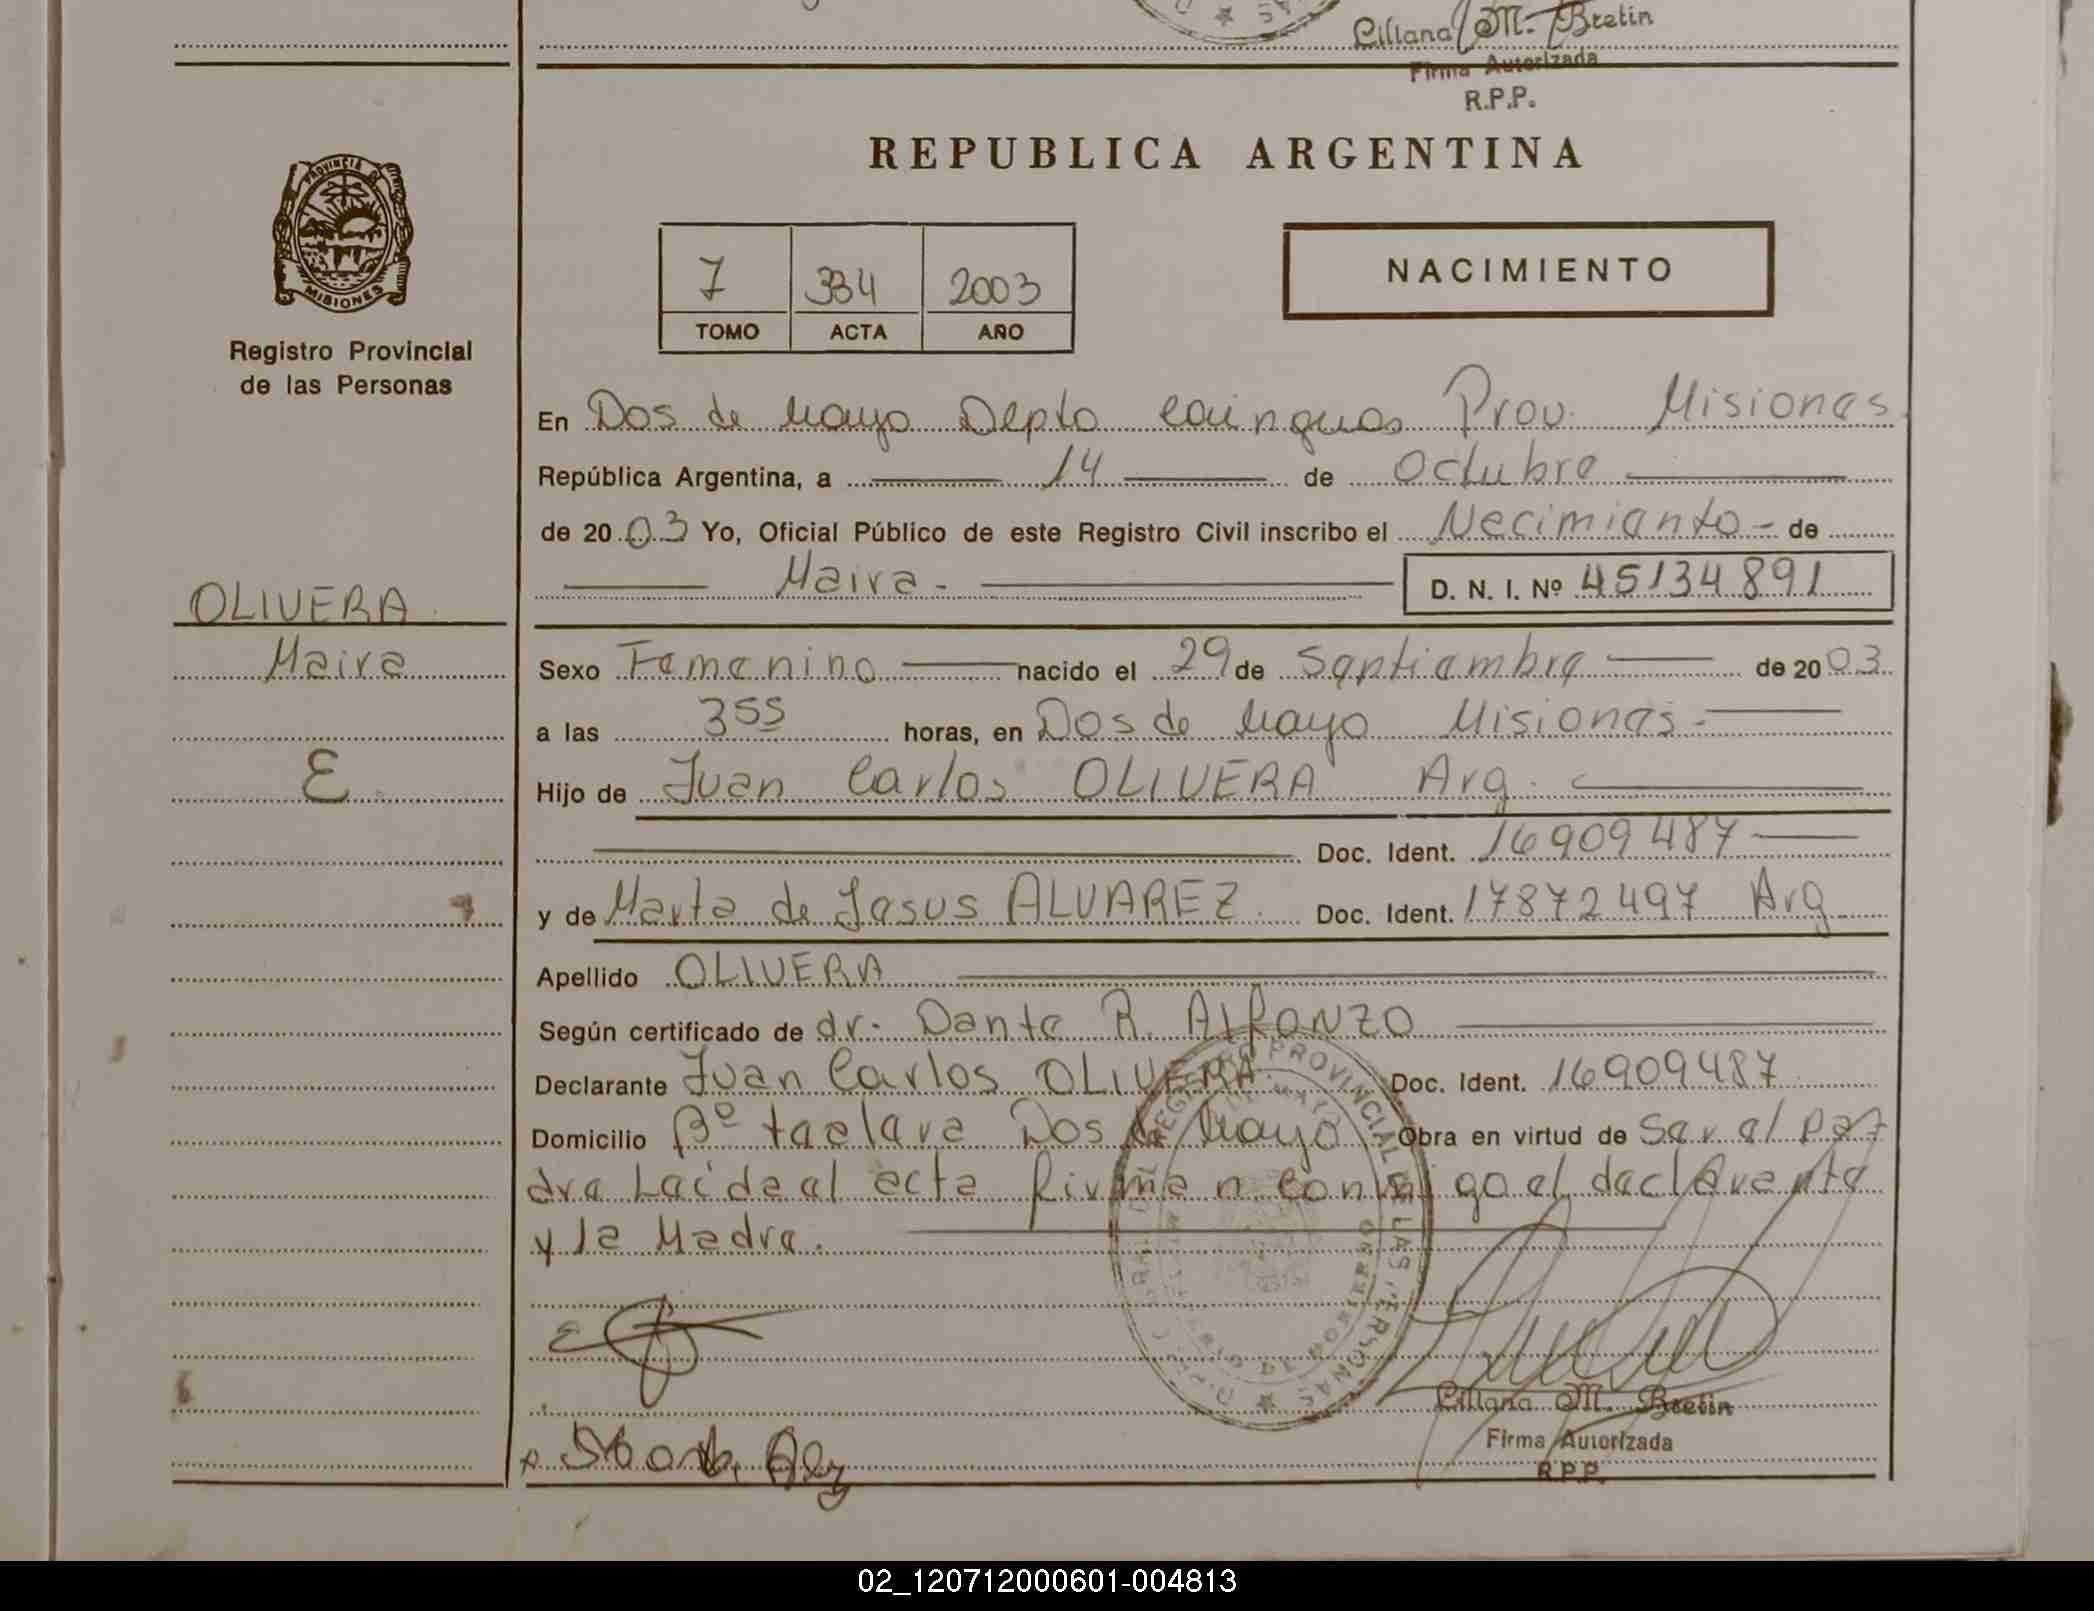 Liliana M. Bretin
Firma Autorizada
R.P.P.
REPUBLICA ARGENTINA
PROVINCIA DE
MISIONES
Registro Provincial
de las Personas
7 334 2003
TOMO ACTA AÑO
NACIMIENTO
En Dos de Mayo Depto Cainguas Prov. Misiones
República Argentina, a 14 de Octubre
de 2003 Yo, Oficial Público de este Registro Civil inscribo el Necimiento - de
Maira - D. N. I. Nº 45134891
OLIVERA
Maira
E
Sexo Femenino nacido el 29 de Septiembre de 2003
a las 355 horas, en Dos de Mayo Misiones -
Hijo de Juan Carlos OLIVERA Arg.
Doc. Ident. 16909487
y de Marta de Jesus ALVAREZ Doc. Ident. 17872497 Arg
Apellido OLIVERA
Según certificado de dr. Dante R. Alfonzo
Declarante Juan Carlos OLIVERA Doc. Ident. 16909487
Domicilio Bº Dos de Mayo Obra en virtud de Ser el pa-
dre Leída el acta firman conmigo el declarante
y la Madre.
Liliana M. Bretin
Firma Autorizada
R.P.P.
02_120712000601-004813